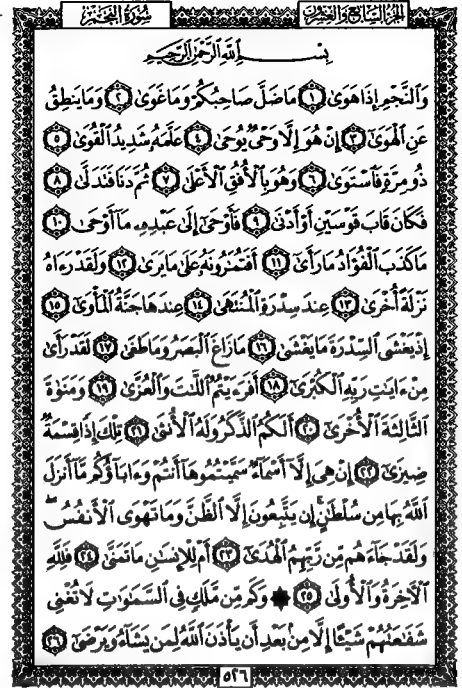 سُورَةُ النَّجْمِ الجُزْءُ السَّابِعُ وَالْعِشْرُونَ
بِسْمِ اللَّهِ الرَّحْمَٰنِ الرَّحِيمِ
وَالنَّجْمِ إِذَا هَوَىٰ ١ مَا ضَلَّ صَاحِبُكُمْ وَمَا غَوَىٰ ٢ وَمَا يَنطِقُ
عَنِ الْهَوَىٰ ٣ إِنْ هُوَ إِلَّا وَحْيٌ يُوحَىٰ ٤ عَلَّمَهُ شَدِيدُ الْقُوَىٰ ٥
ذُو مِرَّةٍ فَاسْتَوَىٰ ٦ وَهُوَ بِالْأُفُقِ الْأَعْلَىٰ ٧ ثُمَّ دَنَا فَتَدَلَّىٰ ٨
فَكَانَ قَابَ قَوْسَيْنِ أَوْ أَدْنَىٰ ٩ فَأَوْحَىٰ إِلَىٰ عَبْدِهِ مَا أَوْحَىٰ ١٠
مَا كَذَبَ الْفُؤَادُ مَا رَأَىٰ ١١ أَفَتُمَارُونَهُ عَلَىٰ مَا يَرَىٰ ١٢ وَلَقَدْ رَءَاهُ
نَزْلَةً أُخْرَىٰ ١٣ عِندَ سِدْرَةِ الْمُنتَهَىٰ ١٤ عِندَهَا جَنَّةُ الْمَأْوَىٰ ١٥
إِذْ يَغْشَى السِّدْرَةَ مَا يَغْشَىٰ ١٦ مَا زَاغَ الْبَصَرُ وَمَا طَغَىٰ ١٧ لَقَدْ رَأَىٰ
مِنْ ءَايَٰتِ رَبِّهِ الْكُبْرَىٰ ١٨ أَفَرَءَيْتُمُ اللَّٰتَ وَالْعُزَّىٰ ١٩ وَمَنَوٰةَ
الثَّالِثَةَ الْأُخْرَىٰ ٢٠ أَلَكُمُ الذَّكَرُ وَلَهُ الْأُنثَىٰ ٢١ تِلْكَ إِذًا قِسْمَةٌ
ضِيزَىٰ ٢٢ إِنْ هِيَ إِلَّا أَسْمَاءٌ سَمَّيْتُمُوهَا أَنتُمْ وَءَابَاؤُكُم مَّا أَنزَلَ
اللَّهُ بِهَا مِن سُلْطَٰنٍ ۚ إِن يَتَّبِعُونَ إِلَّا الظَّنَّ وَمَا تَهْوَى الْأَنفُسُ ۖ
وَلَقَدْ جَاءَهُم مِّن رَّبِّهِمُ الْهُدَىٰ ٢٣ أَمْ لِلْإِنسَٰنِ مَا تَمَنَّىٰ ٢٤ فَلِلَّهِ
الْءَاخِرَةُ وَالْأُولَىٰ ٢٥ ۞ وَكَم مِّن مَّلَكٍ فِي السَّمَٰوَٰتِ لَا تُغْنِي
شَفَٰعَتُهُمْ شَيْئًا إِلَّا مِن بَعْدِ أَن يَأْذَنَ اللَّهُ لِمَن يَشَاءُ وَيَرْضَىٰ ٢٦
٥٢٦